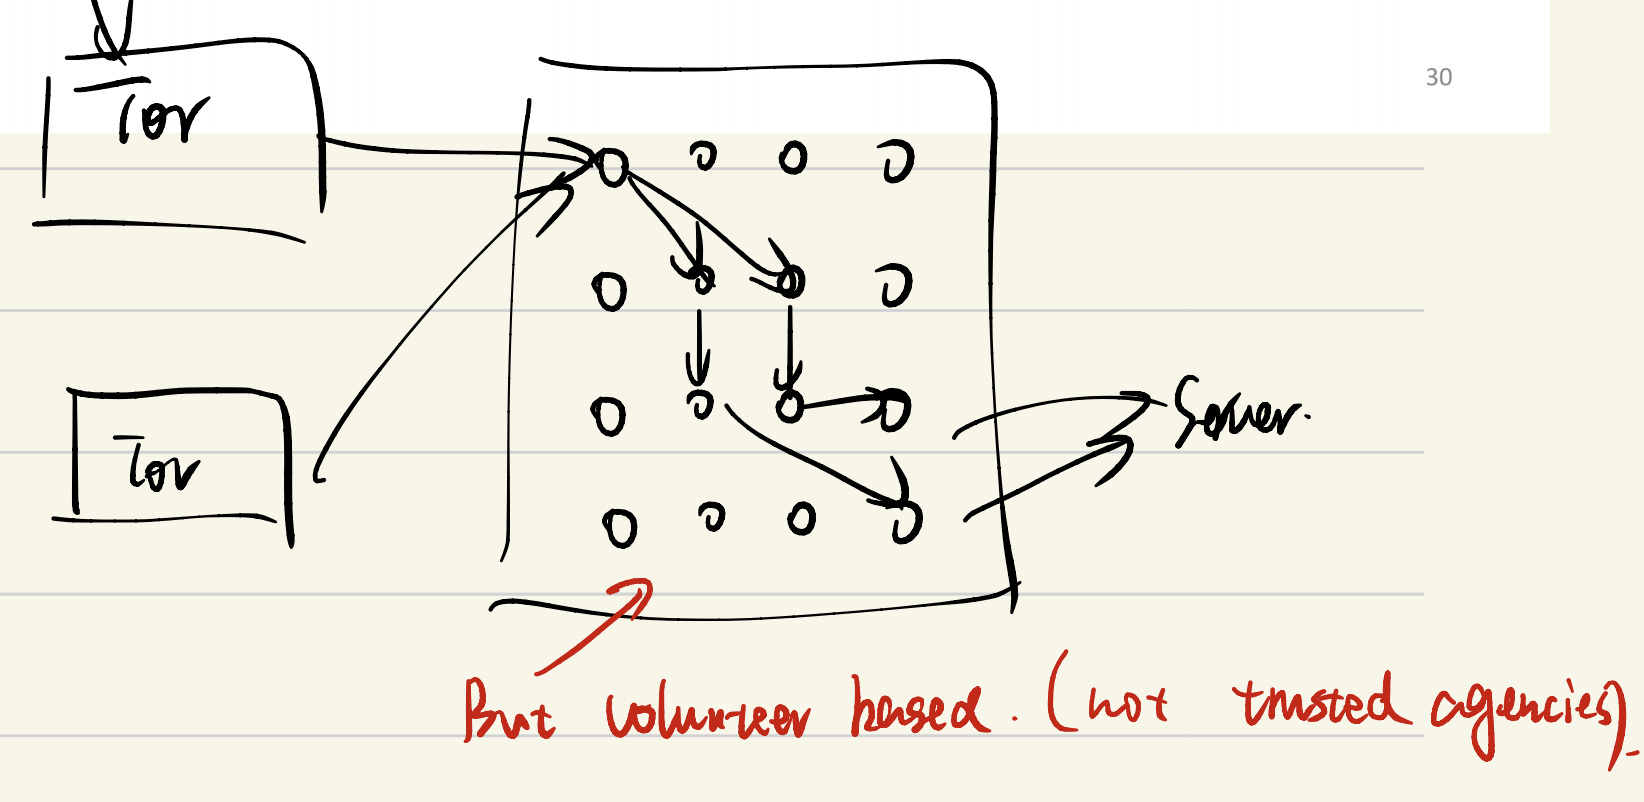 30
Tor
Server.
Tor
But volunteer based. (not trusted agencies).